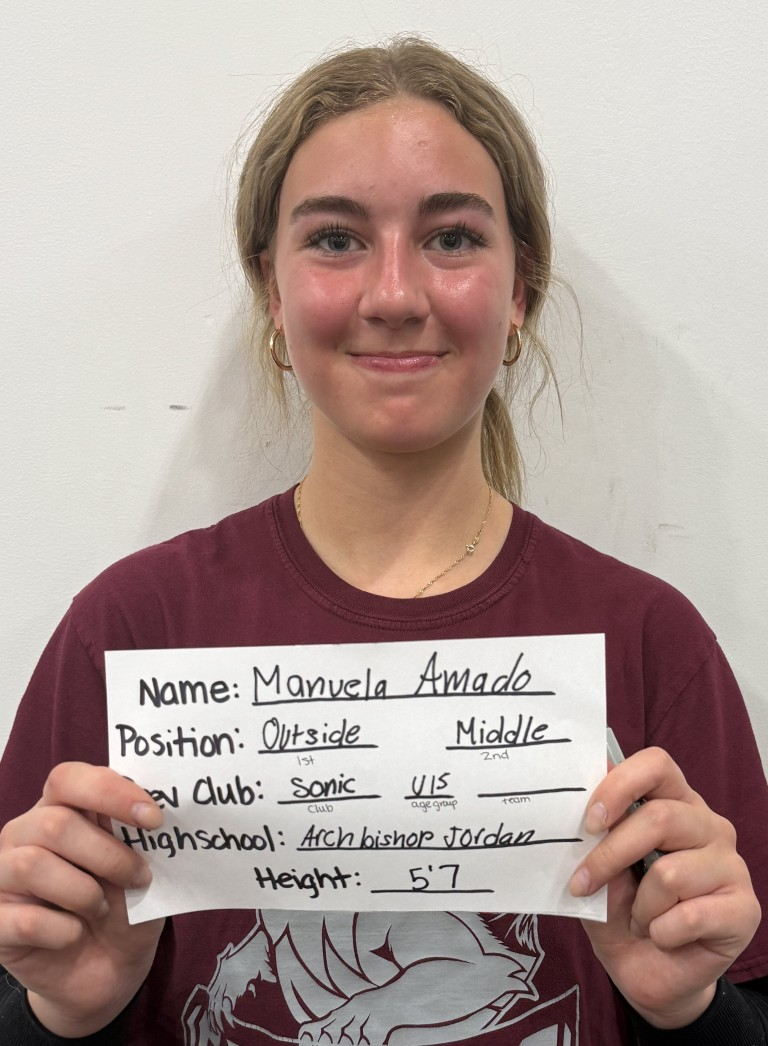 Name: Manuela Amado
Position: Outside Middle
1st 2nd
Prev Club: Sonic U15
Club age group team
Highschool: Archbishop Jordan
Height: 5'7